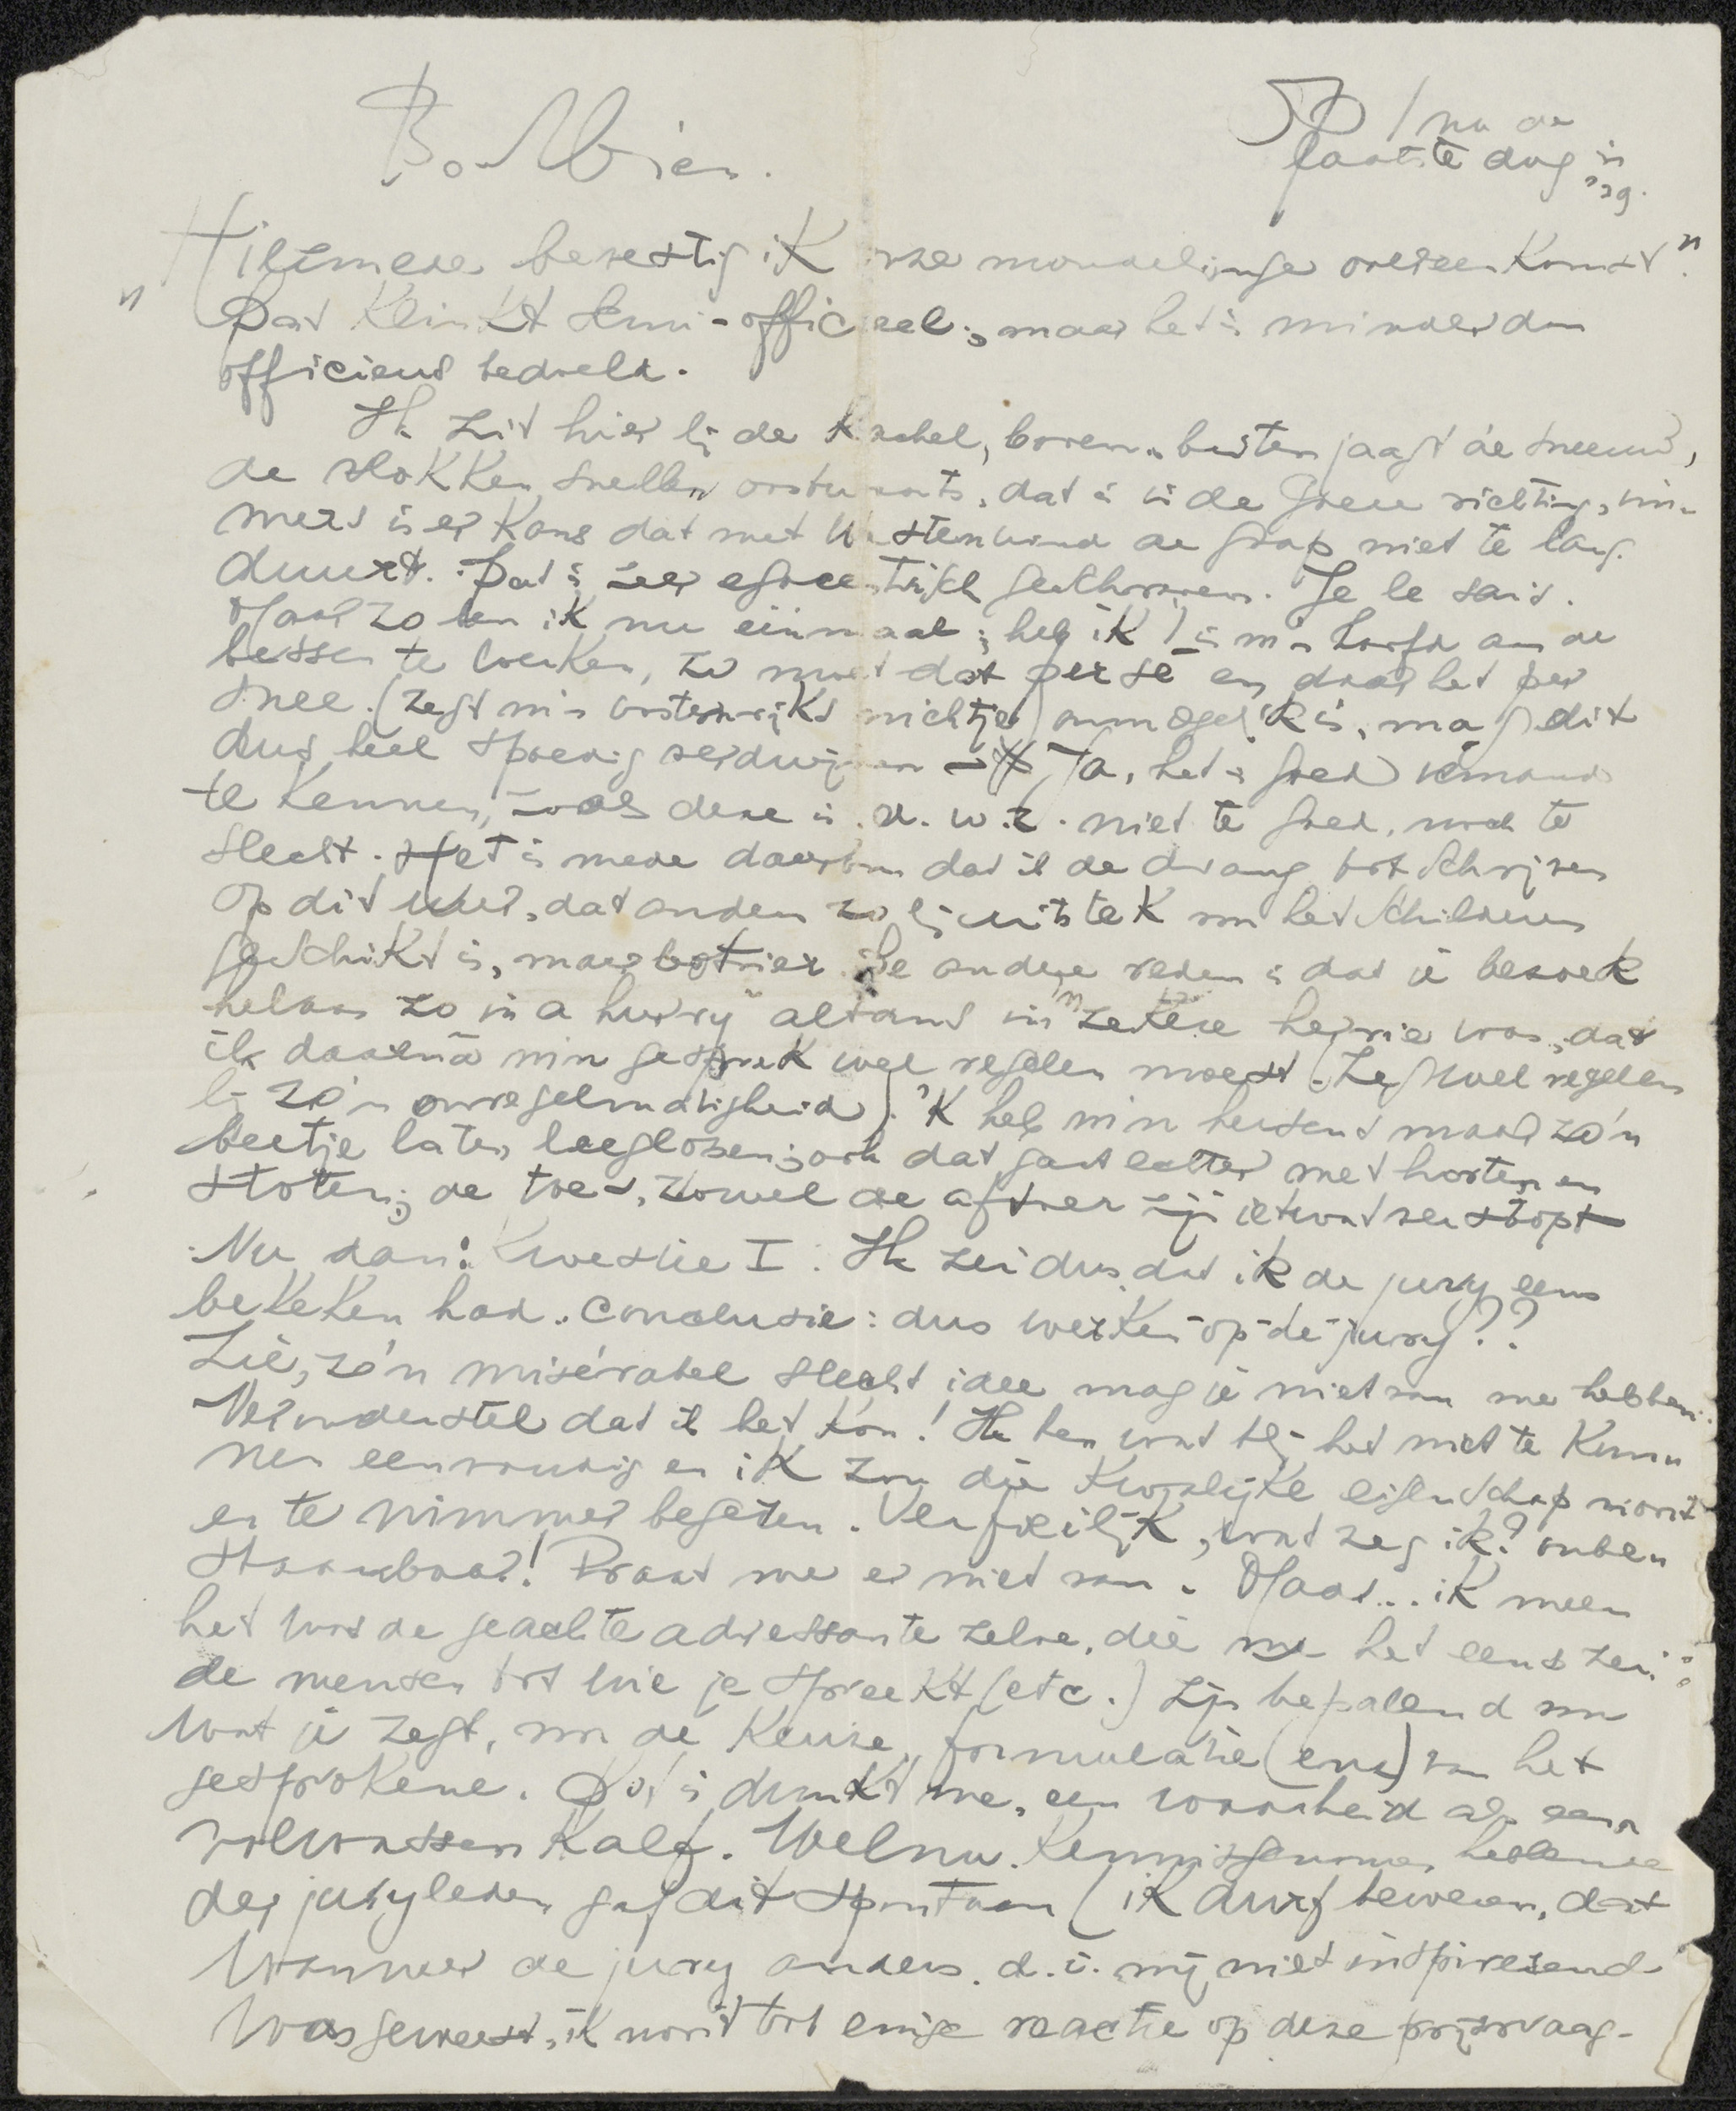 Bo Mien.
na de
laatste dag in
Hiermede bevestig ik onze mondelinge overeenkomst".
"Dat klinkt semi-officieel, maar het is minder dan
officieus bedoeld.
Ik zit hier bij de kachel, boven. buiten jaagt de sneeuw,
de vlokken snellen oostwaarts, dat is in de goeie richting, im-
mers is er kans dat met Westenwind de grap niet te lang
duurt. Dat is zeer egocentrisch geschreven. Je le sais.
Maar zo ben ik nu éénmaal; heb ik 't in m'n hoofd om de
bessen te werken, zo moet dat per se en daar het per
snee (zegt m'n oostenrijks nichtje) onmogelijk is, mag dit
dus heel spoedig verdwijnen — Ja, het is goed iemand
te kennen, zoals deze is, d.w.z. niet te goed, noch te
slecht. Het is mede daarom dat ik de drang tot schrijven
op dit uur, dat anders zo bij uitstek van het schilderen
geschikt is, maar botvier. De andere reden is dat je bezoek
helaas zo in a hurry althans in 'n zekere herrie was, dat
ik daarna m'n gesprek wel regelen moest (Zeg wel regelen
bij zo'n onregelmatigheid). 'k heb m'n hersens maar zo'n
beetje laten leeglozen; ook dat gaat echter met horten en
stoten; de toe-, zowel de afvoer zijn ietwat verstopt
Nu dan: Kwestie I: Ik zei dus dat ik de jury eens
bekeken had. Conclusie: dus werken-op-de-jury??
Zie, zo'n misérabel slecht idee mag je niet van me hebben.
Veronderstel dat ik het kón! Ik ben wat blij het niet te kun-
nen eenvoudig en ik zou die kwalijke eigenschap nooit
en te nimmer begeren. Verfoeilijk, wat zeg ik? onben
staanbaar! Praat me er niet van. Maar... ik meen
het was de geachte adressante zelve, die me het eens zei:
de mensen tot wie je spreekt (etc.) zijn bepalend van
wat je zegt, van de keuze, formulatie (enz) van het
gesprokene. Dat is dunkt me, een waarheid als een
volwassen kalf. Welnu. Kennisgenomen hebbende
der juryleden gaf dit spontaan (ik durf beweren, dat
wanneer de jury anders. d.i. mij niet inspirerend
was geweest, ik nooit tot enige reactie op deze prijsvraag-